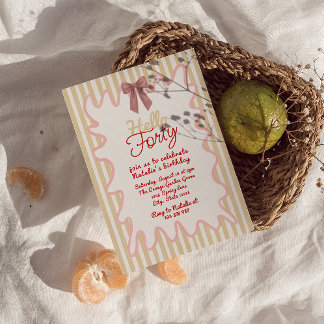 Hello
Forty
Join us to celebrate
Natalie's birthday
Saturday, August 14 at 5pm
The Orange Garden Grove
1234 Spring Lane
City, State 12345
Rsvp to Natalie at
123 456 789